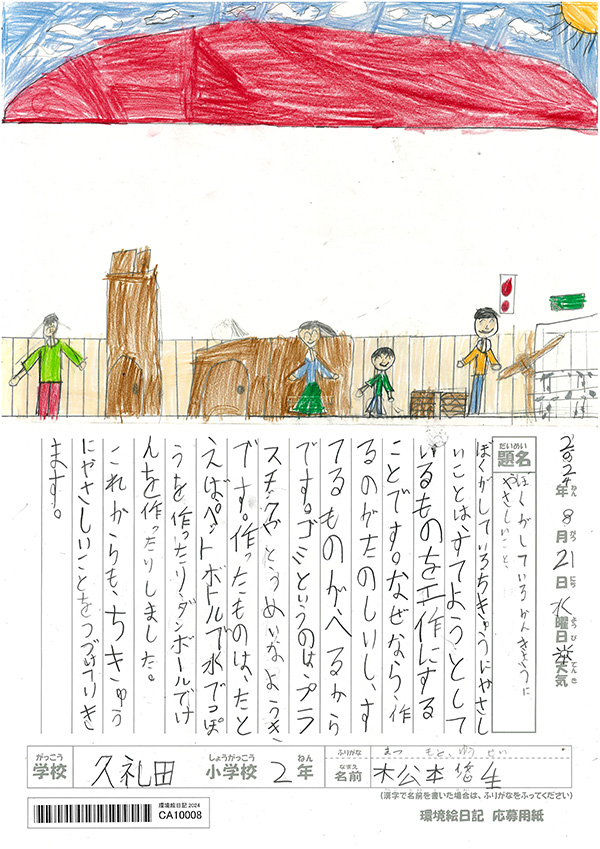 2024年8月21日水曜日天気
ねん
がつ
にち
ようび
てんき
だいめい
題名
ぼくがしているかんきょうに
やさしいこと。
ぼくがしているちきゅうにやさし
いことは、すてようとして
いるものを工作にする
ことです。なぜなら、作
るのがたのしいし、す
てるものがへるから
です。ゴミというのは、プラ
スチックやとうめいなようき
です。作ったものは、たと
えば。ペットボトルで水でっぽ
うを作ったりダンボールでけ
んを作ったりしました。
これからも、ちきゅう
にやさしいことをつづけていき
ます。
がっこう
学校
久礼田
しょうがっこう
小学校
2
ねん
年
ふりがな
まつ もと、ゆう せい
なまえ
名前
松本悠生
(漢字で名前を書いた場合は、ふりがなをふってください)
環境絵日記2024
CA10008
環境絵日記 応募用紙